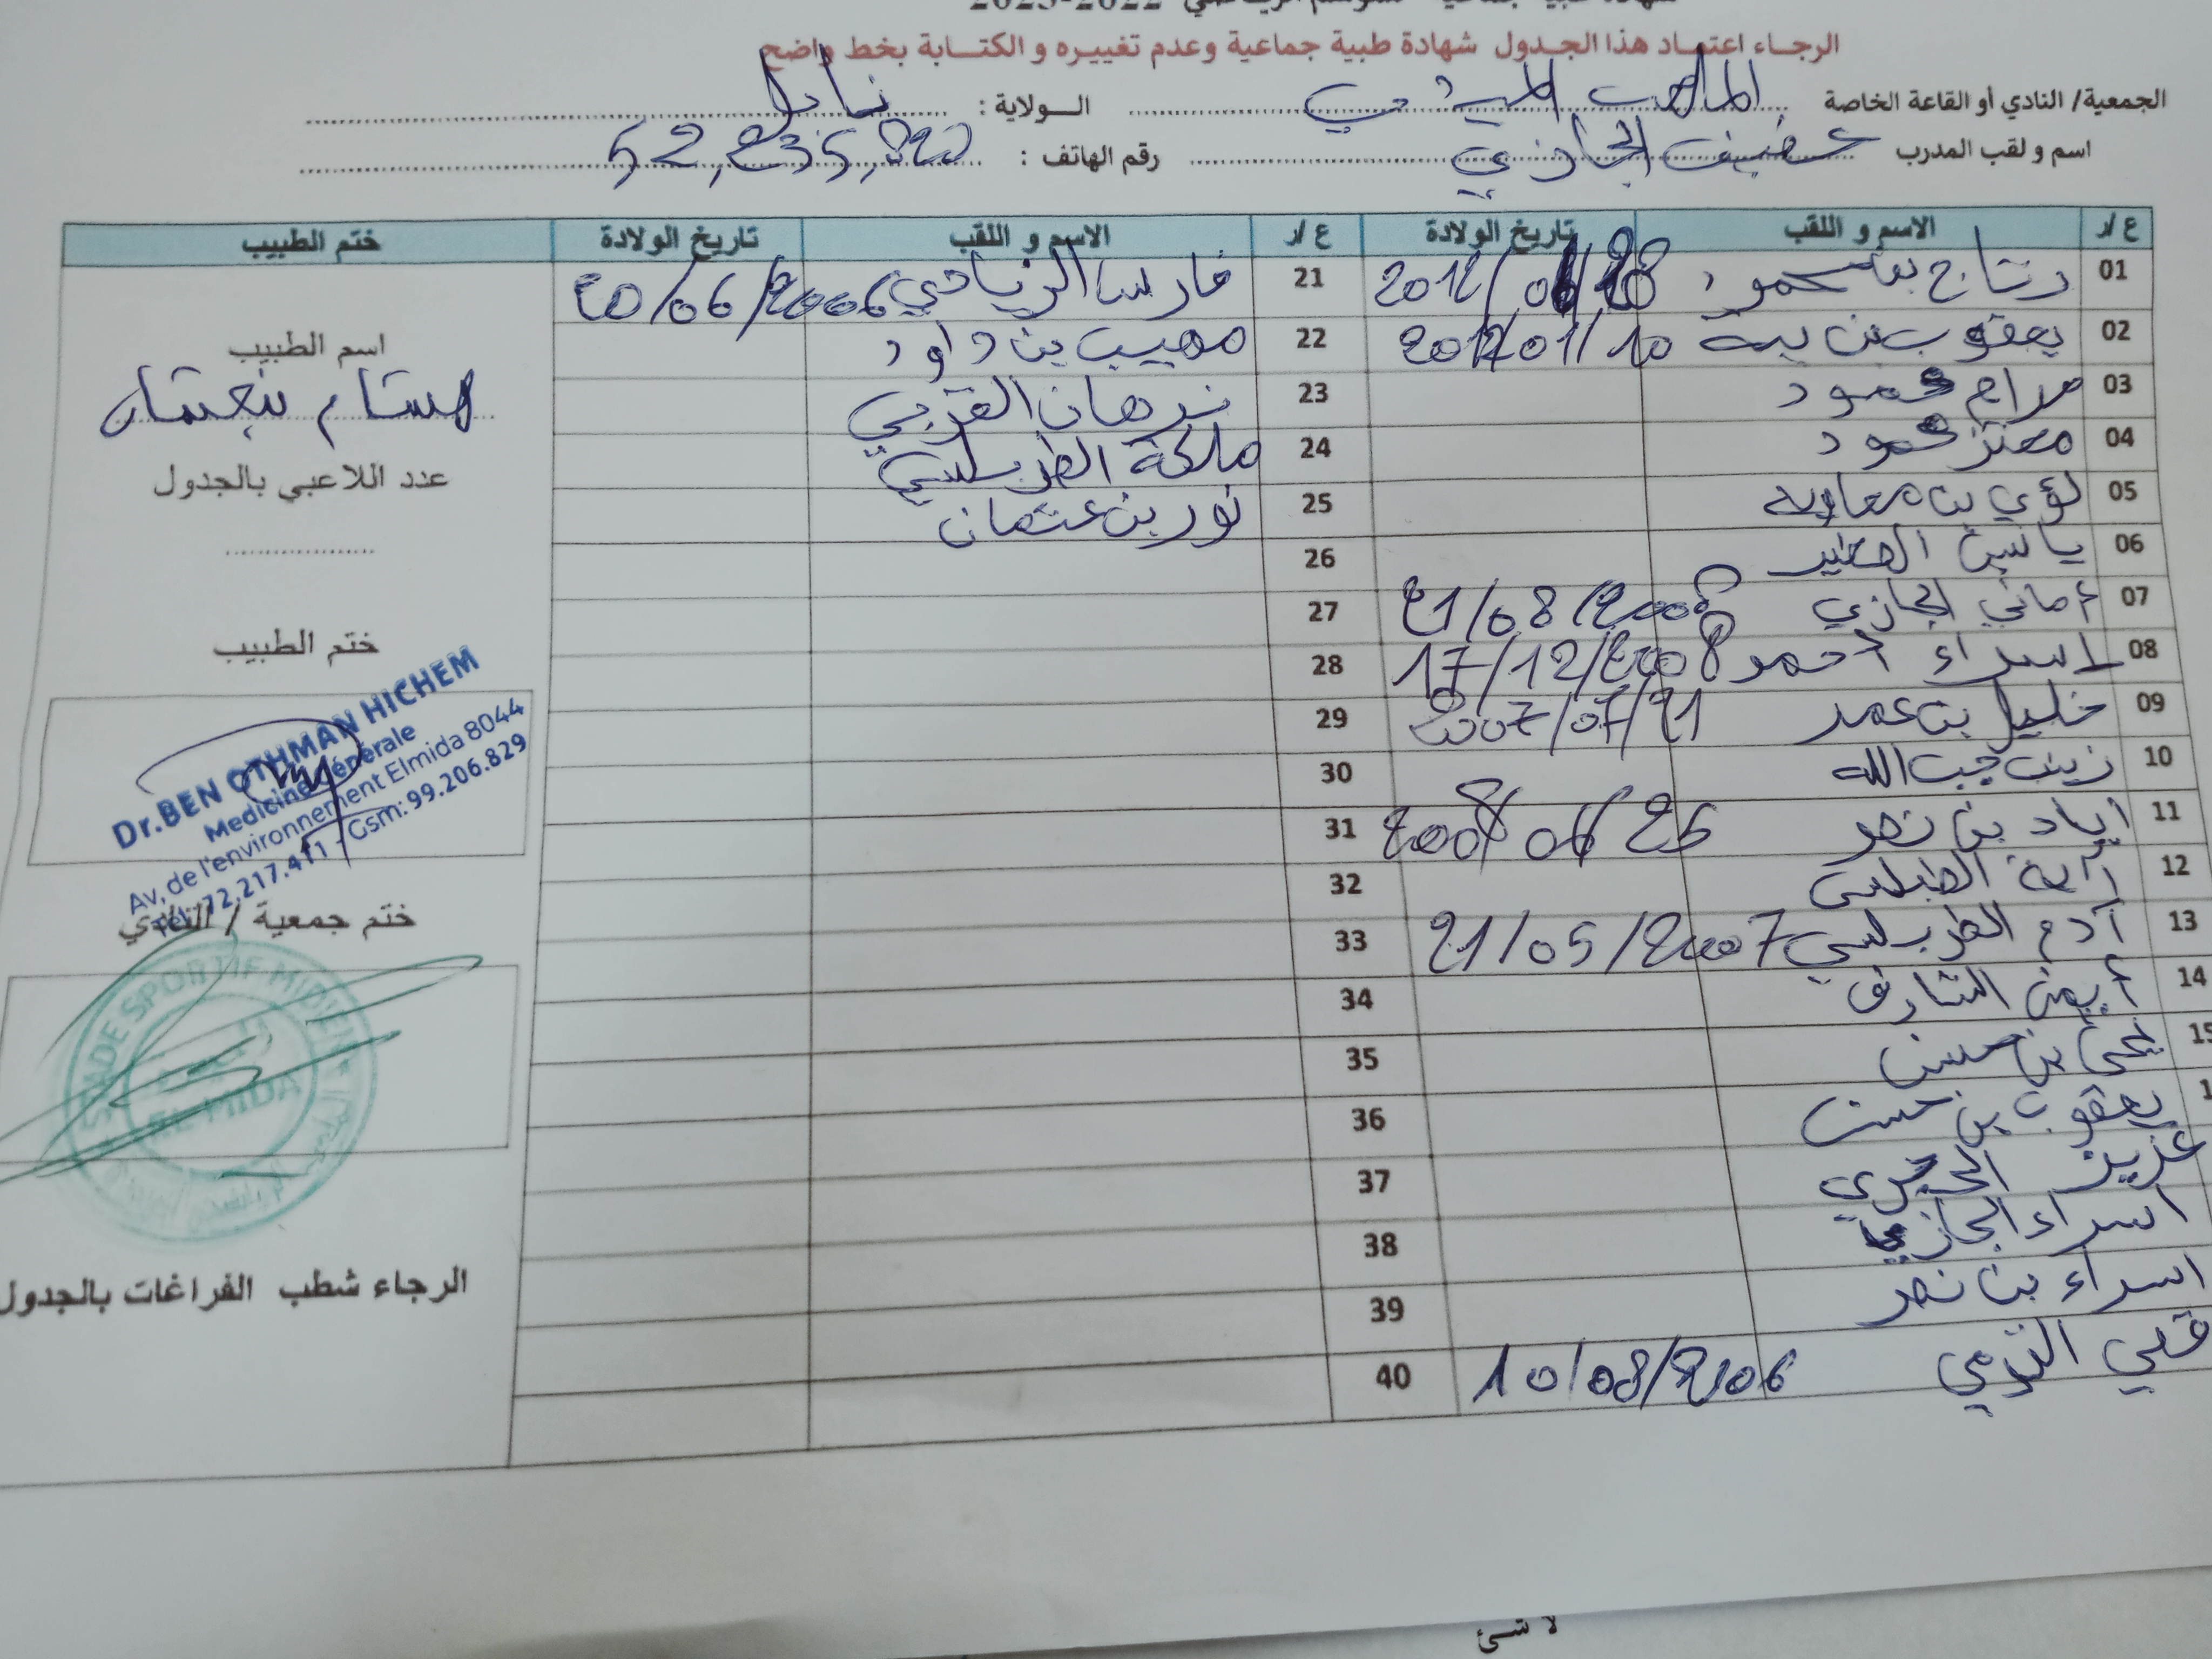 2023-2022
الرجاء اعتماد هذا الجدول شهادة طبية جماعية وعدم تغييره و الكتابة بخط واضح
الجمعية/ النادي أو القاعة الخاصة الملعب الميدي الولاية : نابل
اسم و لقب المدرب الحجازي رقم الهاتف :
ع/ر الاسم و اللقب تاريخ الولادة ع/ر الاسم و اللقب تاريخ الولادة ختم الطبيب
01 رتاج بن حمودة 21 فارس الرياحي 20/06/2006
02 يعقوب بن يية 2012/01/10 22 مهيب بن داود
03 مرام محمود 23 نرمان القزبي
04 معتز محمود 24 ملكة الطرابلسي
05 لؤي بن معاوية 25 نور بن عثمان
06 ياسين 26
07 أماني الحجازي 21/08/2008 27
08 اسراء أحمد 17/12/2008 28
09 خليل بن عمر 2007/07/21 29
10 زينب جب الله 30
11 اياد بن نصر 2008/06/25 31
12 آية 32
13 آدم الطرابلسي 21/05/2007 33
14 أيمن الشارف 34
15 يحيى بن حسين 35
يعقوب بن حسن 36
عزيز الحجري 37
اسراء الحجازي 38
اسراء بن نصر 39
قصي التومي 10/08/2006 40
اسم الطبيب
هشام بنعثمان
عدد اللاعبي بالجدول
ختم الطبيب
Dr.BEN OTHMAN HICHEM
Medicine Générale
Av. de l'environnement Elmida 8044
Tél.: 72.217.411 - Gsm: 99.206.829
ختم جمعية / النادي
STADE SPORTIF MIDIEN
EL MIDA
الرجاء شطب الفراغات بالجدول
لا شئ